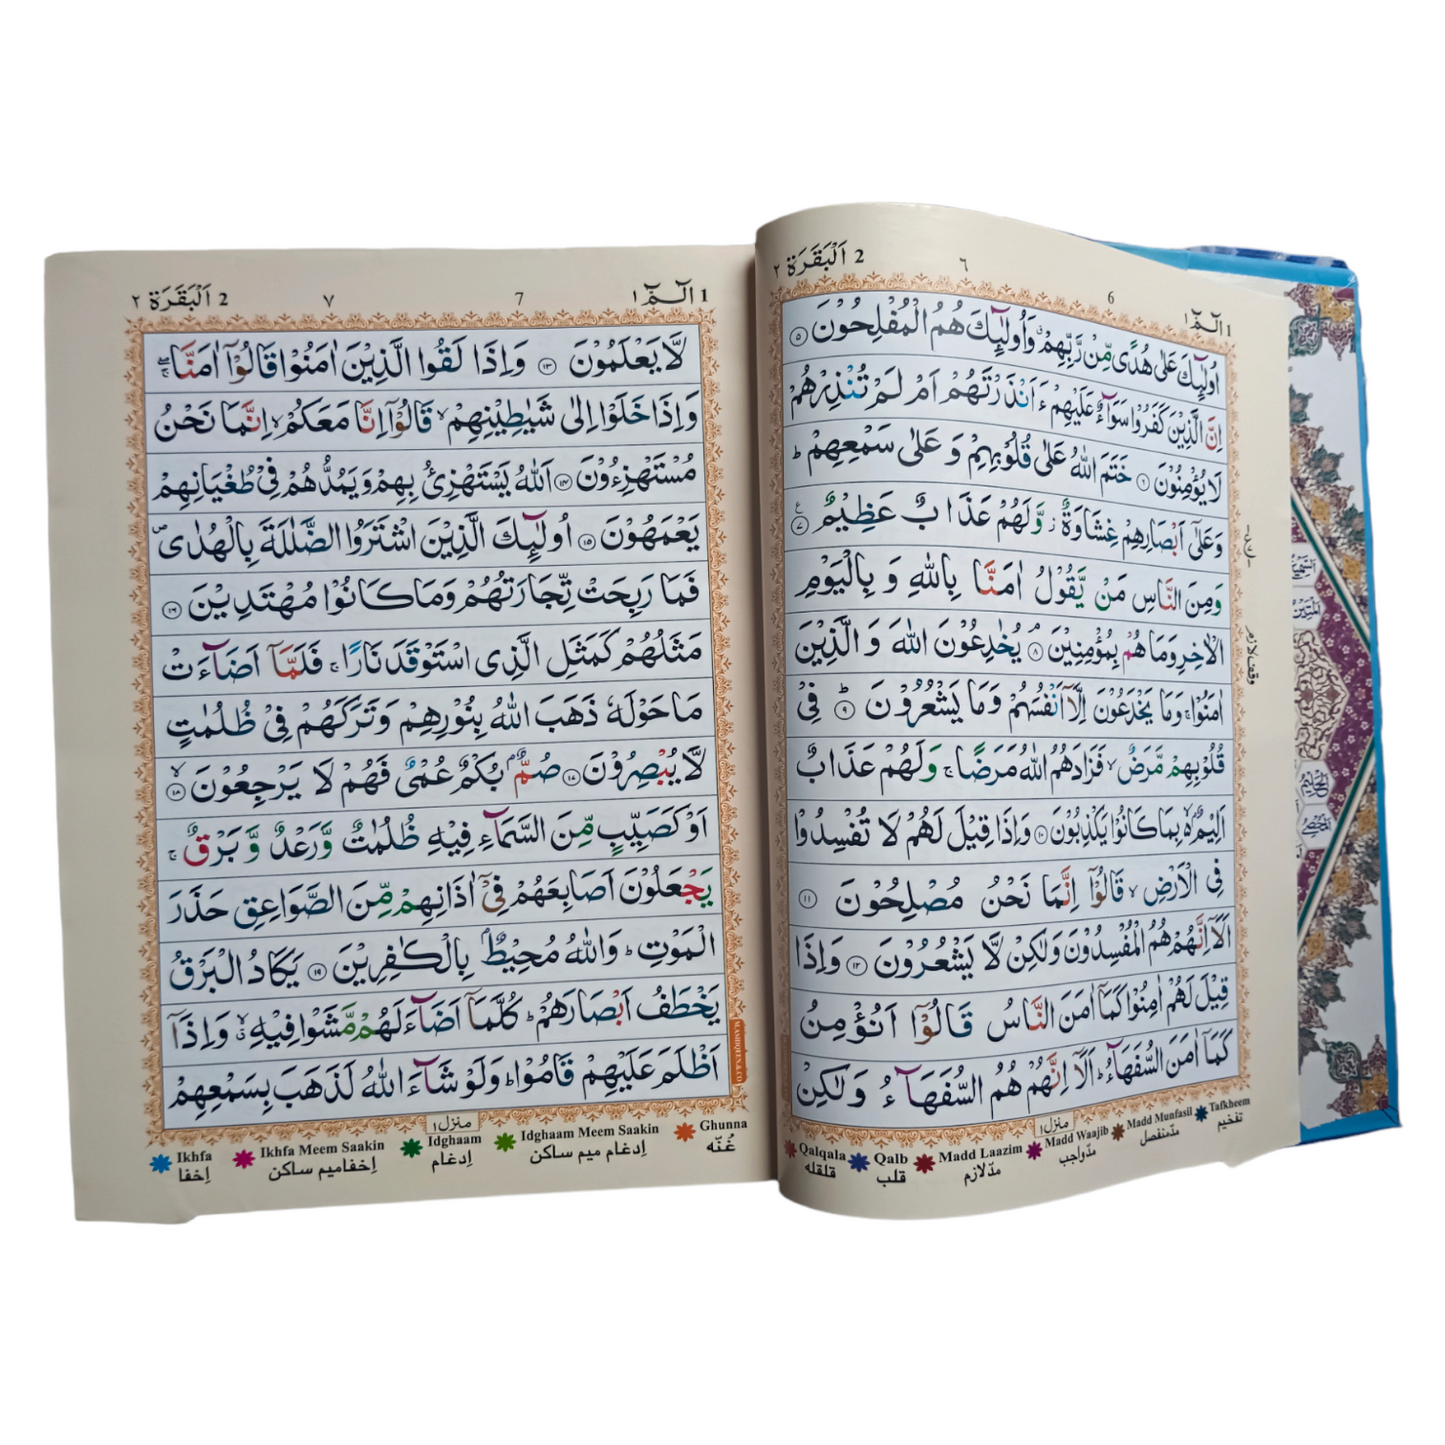 1 الٓمّٓ ١
6
٦
2 اَلْبَقَرَة ٢
اُولٰٓئِكَ عَلٰى هُدًى مِّنْ رَّبِّهِمْ ۗ وَاُولٰٓئِكَ هُمُ الْمُفْلِحُوْنَ ۵
اِنَّ الَّذِيْنَ كَفَرُوْا سَوَآءٌ عَلَيْهِمْ ءَاَنْذَرْتَهُمْ اَمْ لَمْ تُنْذِرْهُمْ
لَا يُؤْمِنُوْنَ ۶ خَتَمَ اللّٰهُ عَلٰى قُلُوْبِهِمْ وَ عَلٰى سَمْعِهِمْ ؕ
وَعَلٰٓى اَبْصَارِهِمْ غِشَاوَةٌ ز وَّلَهُمْ عَذَابٌ عَظِيْمٌ ۷
وَمِنَ النَّاسِ مَنْ يَّقُوْلُ اٰمَنَّا بِاللّٰهِ وَ بِالْيَوْمِ
الْاٰخِرِ وَمَا هُمْ بِمُؤْمِنِيْنَ ۘ ۸ يُخٰدِعُوْنَ اللّٰهَ وَ الَّذِيْنَ
اٰمَنُوْا ۚ وَمَا يَخْدَعُوْنَ اِلَّآ اَنْفُسَهُمْ وَمَا يَشْعُرُوْنَ ؕ ۹ فِيْ
قُلُوْبِهِمْ مَّرَضٌ ۙ فَزَادَهُمُ اللّٰهُ مَرَضًا ۚ وَلَهُمْ عَذَابٌ
اَلِيْمٌۢ ۙ۬ بِمَا كَانُوْا يَكْذِبُوْنَ ۱۰ وَاِذَا قِيْلَ لَهُمْ لَا تُفْسِدُوْا
فِي الْاَرْضِ ۙ قَالُوْٓا اِنَّمَا نَحْنُ مُصْلِحُوْنَ ۱۱
اَلَآ اِنَّهُمْ هُمُ الْمُفْسِدُوْنَ وَلٰكِنْ لَّا يَشْعُرُوْنَ ۱۲ وَاِذَا
قِيْلَ لَهُمْ اٰمِنُوْا كَمَآ اٰمَنَ النَّاسُ قَالُوْٓا اَنُؤْمِنُ
كَمَآ اٰمَنَ السُّفَهَآءُ ؕ اَلَآ اِنَّهُمْ هُمُ السُّفَهَآءُ وَلٰكِنْ
منزل ١
Qalqala Qalb Madd Laazim Madd Waajib Madd Munfasil Tafkheem
قلقله قلب مدّ لازم مدّ واجب مدّ منفصل تفخيم
وقف لازم
1 الٓمّٓ ١
7
٧
2 اَلْبَقَرَة ٢
لَّا يَعْلَمُوْنَ ۱۳ وَاِذَا لَقُوا الَّذِيْنَ اٰمَنُوْا قَالُوْٓا اٰمَنَّا ۖۚ
وَاِذَا خَلَوْا اِلٰى شَيٰطِيْنِهِمْ ۙ قَالُوْٓا اِنَّا مَعَكُمْ ۙ اِنَّمَا نَحْنُ
مُسْتَهْزِءُوْنَ ۱۴ اَللّٰهُ يَسْتَهْزِئُ بِهِمْ وَيَمُدُّهُمْ فِيْ طُغْيَانِهِمْ
يَعْمَهُوْنَ ۱۵ اُولٰٓئِكَ الَّذِيْنَ اشْتَرَوُا الضَّلٰلَةَ بِالْهُدٰى ۪
فَمَا رَبِحَتْ تِّجَارَتُهُمْ وَمَا كَانُوْا مُهْتَدِيْنَ ۱۶
مَثَلُهُمْ كَمَثَلِ الَّذِى اسْتَوْقَدَ نَارًا ۚ فَلَمَّآ اَضَآءَتْ
مَا حَوْلَهٗ ذَهَبَ اللّٰهُ بِنُوْرِهِمْ وَتَرَكَهُمْ فِيْ ظُلُمٰتٍ
لَّا يُبْصِرُوْنَ ۱۷ صُمٌّۢ بُكْمٌ عُمْىٌ فَهُمْ لَا يَرْجِعُوْنَ ۙ ۱۸
اَوْ كَصَيِّبٍ مِّنَ السَّمَآءِ فِيْهِ ظُلُمٰتٌ وَّرَعْدٌ وَّ بَرْقٌ ۚ
يَجْعَلُوْنَ اَصَابِعَهُمْ فِيْٓ اٰذَانِهِمْ مِّنَ الصَّوَاعِقِ حَذَرَ
الْمَوْتِ ؕ وَاللّٰهُ مُحِيْطٌۢ بِالْكٰفِرِيْنَ ۱۹ يَكَادُ الْبَرْقُ
يَخْطَفُ اَبْصَارَهُمْ ؕ كُلَّمَآ اَضَآءَ لَهُمْ مَّشَوْا فِيْهِ ۙۗ وَاِذَآ
اَظْلَمَ عَلَيْهِمْ قَامُوْا ؕ وَلَوْ شَآءَ اللّٰهُ لَذَهَبَ بِسَمْعِهِمْ
منزل ١
Ikhfa Ikhfa Meem Saakin Idghaam Idghaam Meem Saakin Ghunna
اِخفا اِخفا ميم ساكن اِدغام اِدغام ميم ساكن غُنّه